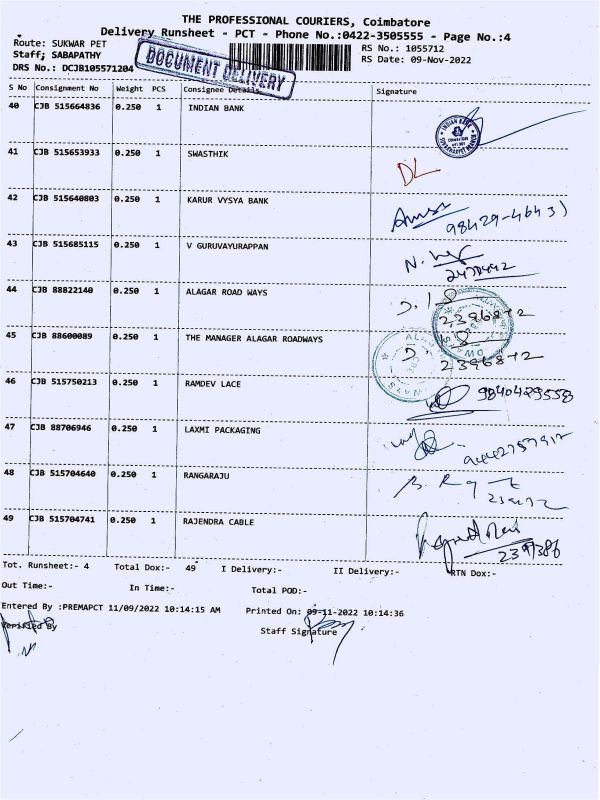 THE PROFESSIONAL COURIERS, Coimbatore
Delivery Runsheet - PCT - Phone No.:0422-3505555 - Page No.:4
Route: SUKWAR PET
RS No.: 1055712
Staff; SABAPATHY
RS Date: 09-Nov-2022
DRS No.: DCJB105571204
DOCUMENT DELIVERY
S No Consignment No Weight PCS Consignee Details Signature
40 CJB 515664836 0.250 1 INDIAN BANK
INDIAN BANK
41 CJB 515653933 0.250 1 SWASTHIK DL
42 CJB 515640803 0.250 1 KARUR VYSYA BANK
98429-46431
43 CJB 515685115 0.250 1 V GURUVAYURAPPAN
44 CJB 88822140 0.250 1 ALAGAR ROAD WAYS
2396872
45 CJB 88600089 0.250 1 THE MANAGER ALAGAR ROADWAYS
2396872
46 CJB 515750213 0.250 1 RAMDEV LACE 9840429558
47 CJB 88706946 0.250 1 LAXMI PACKAGING
48 CJB 515704640 0.250 1 RANGARAJU
49 CJB 515704741 0.250 1 RAJENDRA CABLE
2397386
Tot. Runsheet:- 4 Total Dox:- 49 I Delivery:- II Delivery:- RTN Dox:-
Out Time:- In Time:- Total POD:-
Entered By :PREMAPCT 11/09/2022 10:14:15 AM Printed On: 09-11-2022 10:14:36
Verified By Staff Signature